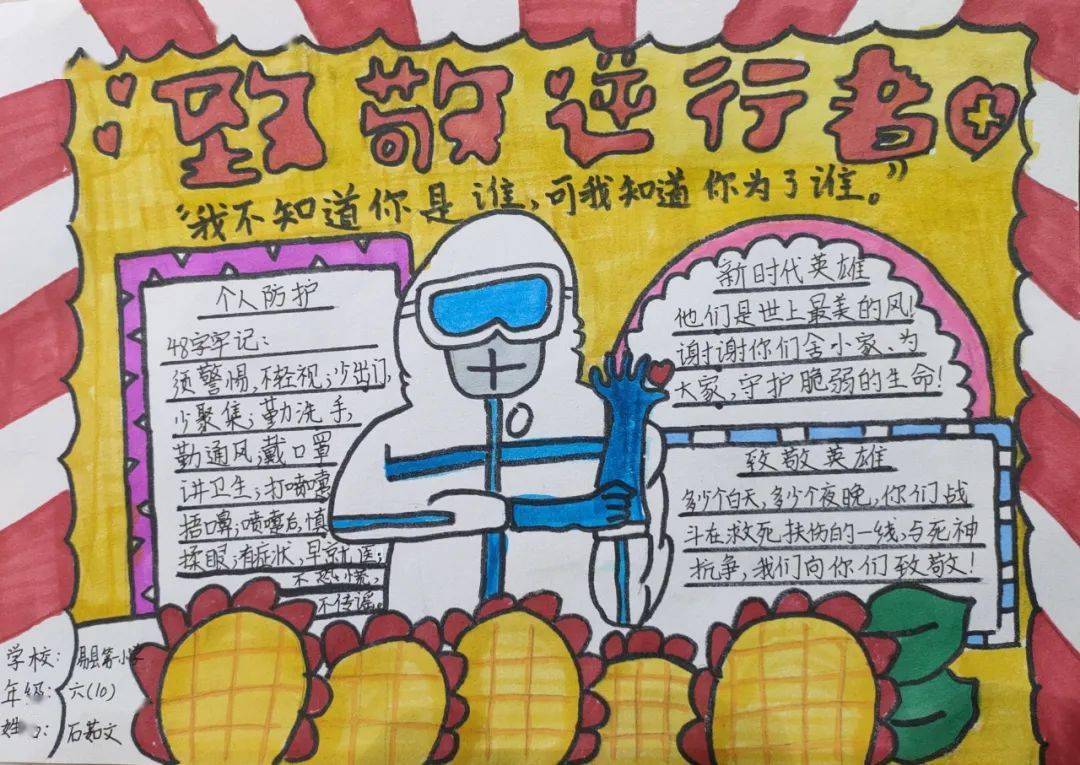 致敬逆行者
“我不知道你是谁，可我知道你为了谁。”
个人防护
48字牢记：
须警惕，不轻视；少出门，
少聚集；勤洗手，
勤通风；戴口罩
讲卫生；打喷嚏
捂嘴；喷嚏后，慎
揉眼；有症状，早就医；
不恐慌，
不传谣。
新时代英雄
他们是世上最美的风！
谢谢你们舍小家、为
大家，守护脆弱的生命！
致敬英雄
多少个白天，多少个夜晚，你们战
斗在救死扶伤的一线，与死神
抗争，我们向你们致敬！
学校：易县第一小学
年级：六(10)
姓名：石若文